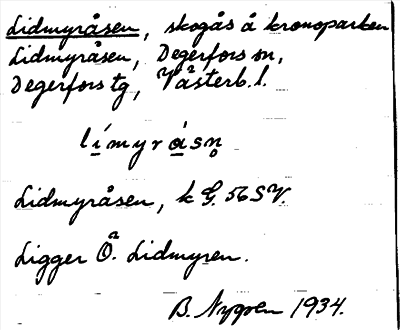 Lidmyråsen, skogås å kronoparken
Lidmyråsen, Degerfors sn,
Degerfors tg, Västerb. l.
Lidmyråsen, k G. 56 SV.
Ligger Ö. Lidmyren.
B. Nygren 1934.